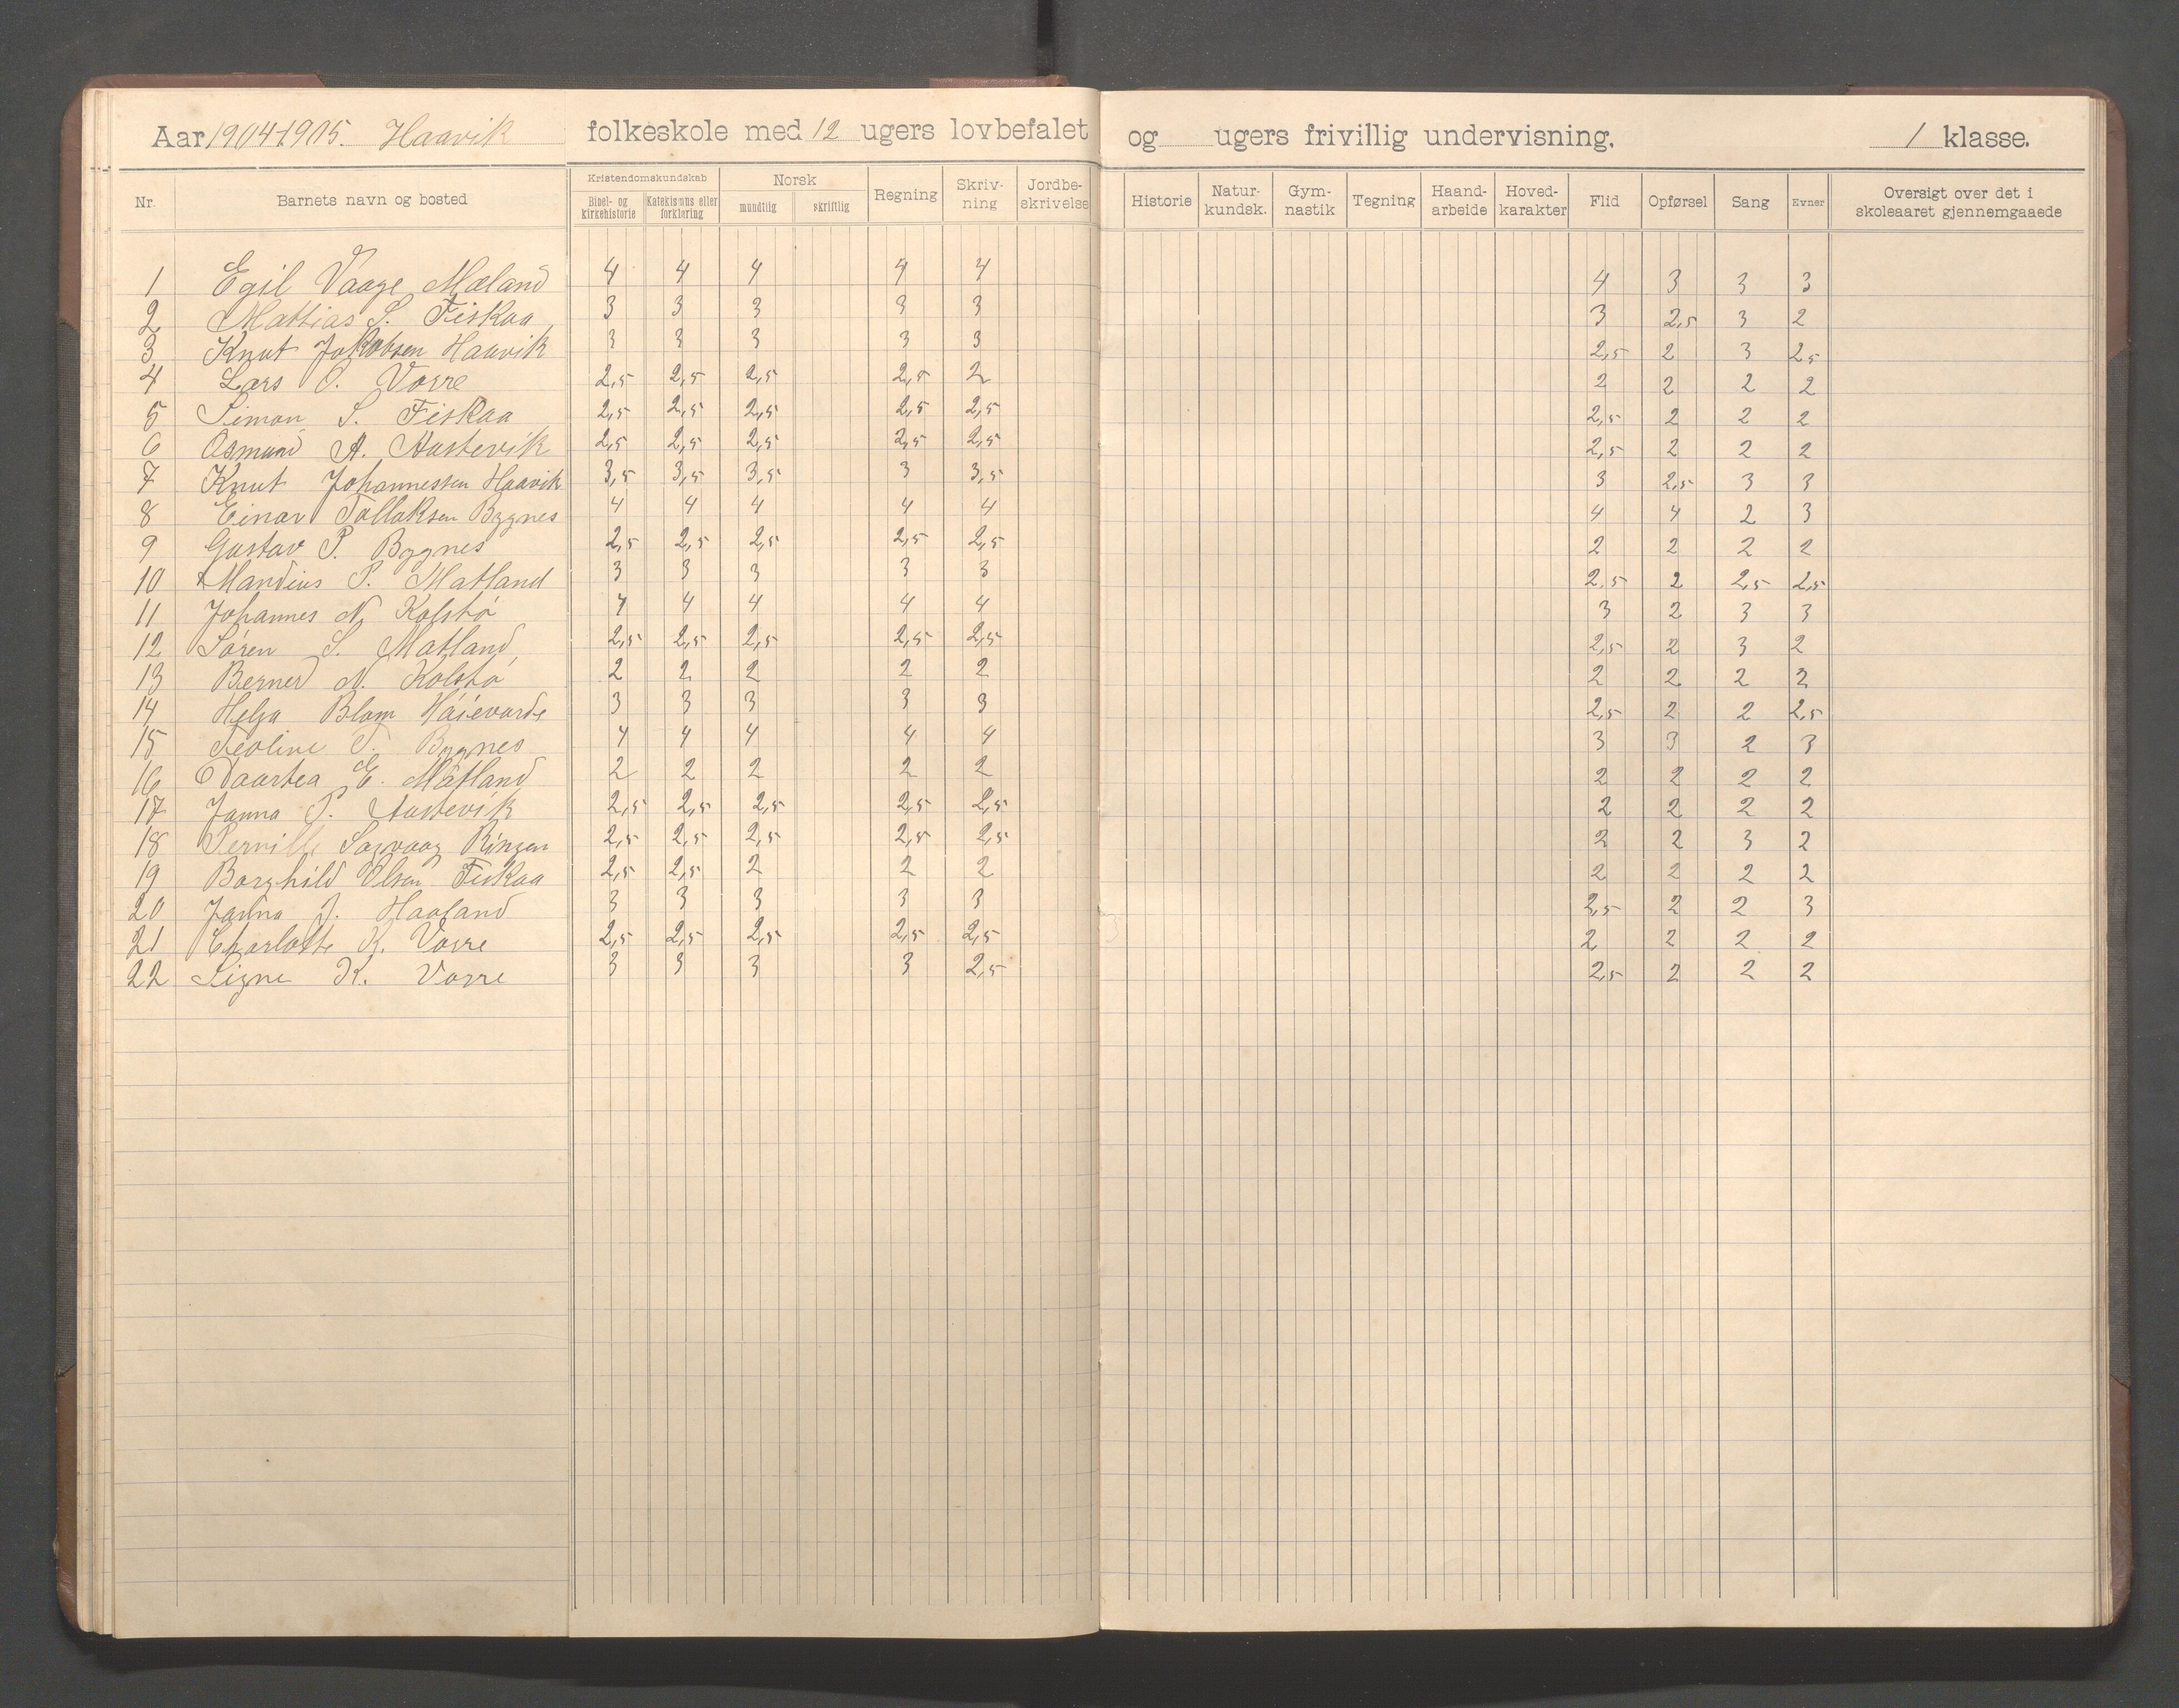 Aar 1904-1905. Haavik folkeskole med 12 ugers lovbefalet og ugers frivillig undervisning. 1 klasse.
Nr. Barnets navn og bosted Kristendomskundskab Bibel- og kirkehistorie Katekismus eller forklaring Norsk mundtlig skriftlig Regning Skriv-ning Jordbe-skrivelse Historie Natur-kundsk. Gym-nastik Tegning Haand-arbeide Hoved-karakter Flid Opførsel Sang Evner Oversigt over det i skoleaaret gjennemgaaede
1 Egil Vaage Mæland 4 4 4 4 4 4 3 3 3
2 Mattias S. Fiskaa 3 3 3 3 3 3 2,5 3 2
3 Knut Jakobsen Haavik 3 3 3 3 3 2,5 2 3 2,5
4 Lars O. Vorre 2,5 2,5 2,5 2,5 2 2 2 2 2
5 Simon S. Fiskaa 2,5 2,5 2,5 2,5 2,5 2,5 2 2 2
6 Osmund A. Austevik 2,5 2,5 2,5 2,5 2,5 2,5 2 2 2
7 Knut Johannessen Haavik 3,5 3,5 3,5 3 3,5 3 2,5 3 3
8 Einar Tollaksen Bygnes 4 4 4 4 4 4 4 2 3
9 Gustav P. Bygnes 2,5 2,5 2,5 2,5 2,5 2 2 2 2
10 Mandius P. Matland 3 3 3 3 3 2,5 2 2,5 2,5
11 Johannes N. Kolstø 4 4 4 4 4 3 2 3 3
12 Søren S. Matland 2,5 2,5 2,5 2,5 2,5 2,5 2 3 2
13 Berner N. Kolstø 2 2 2 2 2 2 2 2 2
14 Helga Blom Høievarde 3 3 3 3 3 2,5 2 2 2,5
15 Teoline T. Bygnes 4 4 4 4 4 3 3 2 3
16 E. Matland 2 2 2 2 2 2 2 2 2
17 Janna P. Austevik 2,5 2,5 2,5 2,5 2,5 2 2 2 2
18 Pernille Sagvaag Ringen 2,5 2,5 2,5 2,5 2,5 2 2 3 2
19 Borghild Olsen Fiskaa 2,5 2,5 2 2 2 2 2 2 2
20 J. Haaland 3 3 3 3 3 2,5 2 2 3
21 Charlotte K. Vorre 2,5 2,5 2,5 2,5 2,5 2 2 2 2
22 Signe K. Vorre 3 3 3 3 2,5 2,5 2 2 2